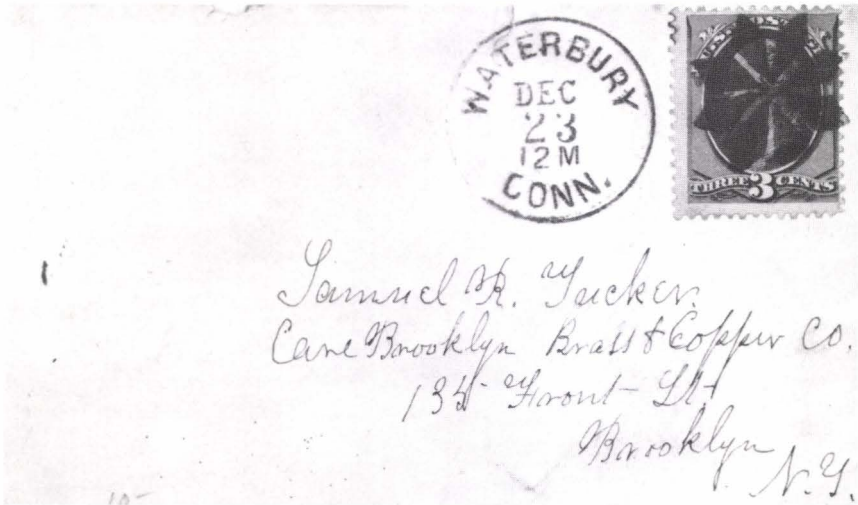 WATERBURY
DEC
23
12 M
CONN.
THREE 3 CENTS
Samuel R. Tucker.
Care Brooklyn Brass & Copper Co.
135 Front St
Brooklyn
N.Y.